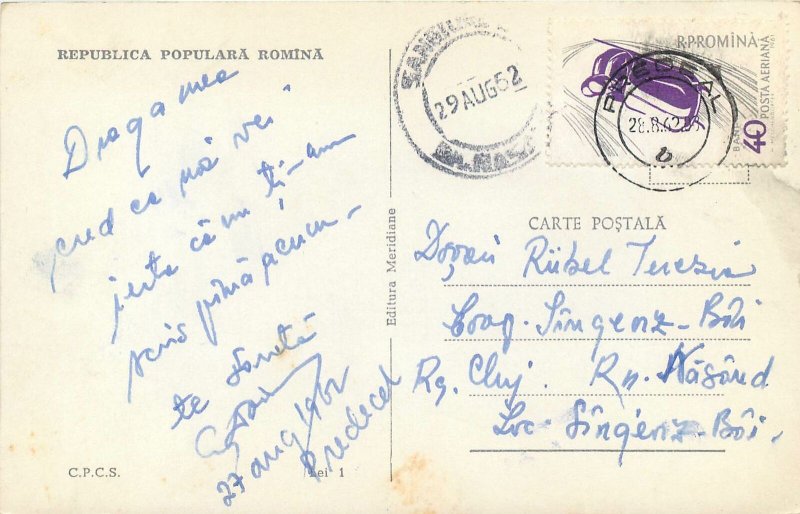 REPUBLICA POPULARĂ ROMÎNĂ
Draga mea
cred ca mă vei
ierta că nu ți-am
scris pînă acum -
te sărută
27 aug/1962
Predeal
C.P.C.S.
Lei 1
Editura Meridiane
29 AUG 62
R.P.ROMÎNĂ
POSTA AERIANĂ
1961
BANI
40
PREDEAL
28.8.62
b
CARTE POȘTALĂ
Rübel Terezia
Coop. Sîngeorz-Băi
Rg. Cluj. Rn. Năsăud
Loc. Sîngeorz-Băi.